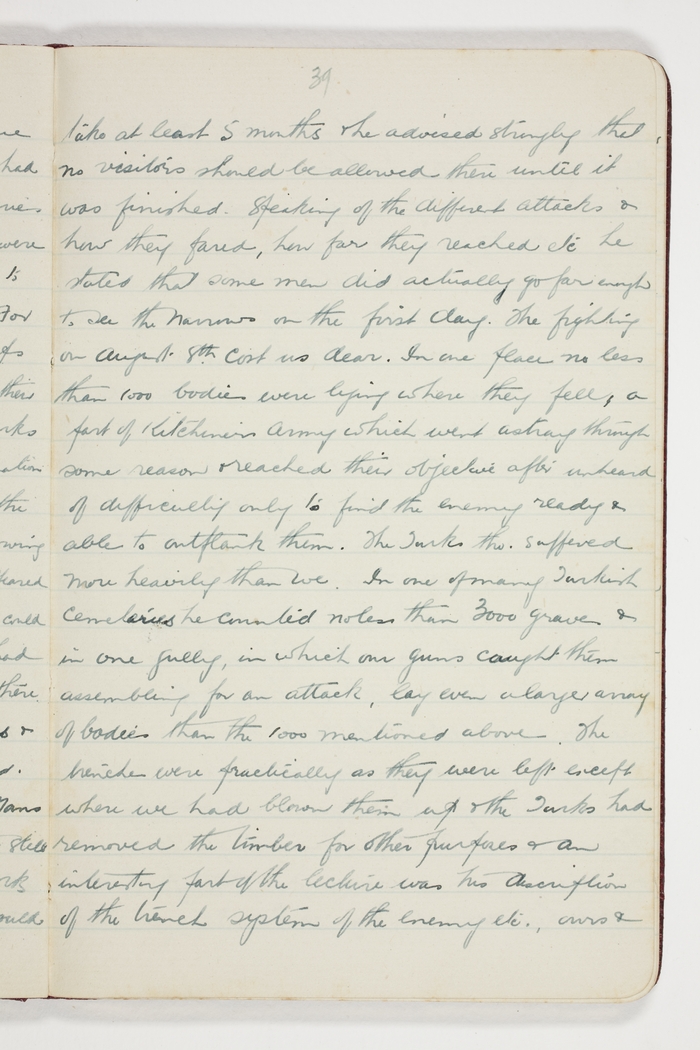 39
take at least 5 months & he advised strongly that
no visitors should be allowed there until it
was finished. Speaking of the different attacks &
how they fared, how far they reached etc he
stated that some men did actually go far enough
to see the Narrows on the first day. The fighting
on August 8th cost us dear. In one place no less
than 1000 bodies were lying where they fell, a
part of Kitcheners Army which went astray through
some reason & reached their objective after unheard
of difficulty only to find the enemy ready &
able to outflank them. The Turks tho. suffered
more heavily than we. In one of many Turkish
cemetaries he counted no less than 3000 graves &
in one gully, in which our guns caught them
assembling for an attack, lay even a larger array
of bodies than the 1000 mentioned above. The
trenches were practically as they were left except
where we had blown them up & the Turks had
removed the timber for other purposes & an
interesting part of the lecture was his description
of the trench system of the enemy etc., ours &
ue
had
were
to
For
of
their
rks
ation
the
owing
heared
could
had
there.
s &
d.
Tans
still
rk
ould